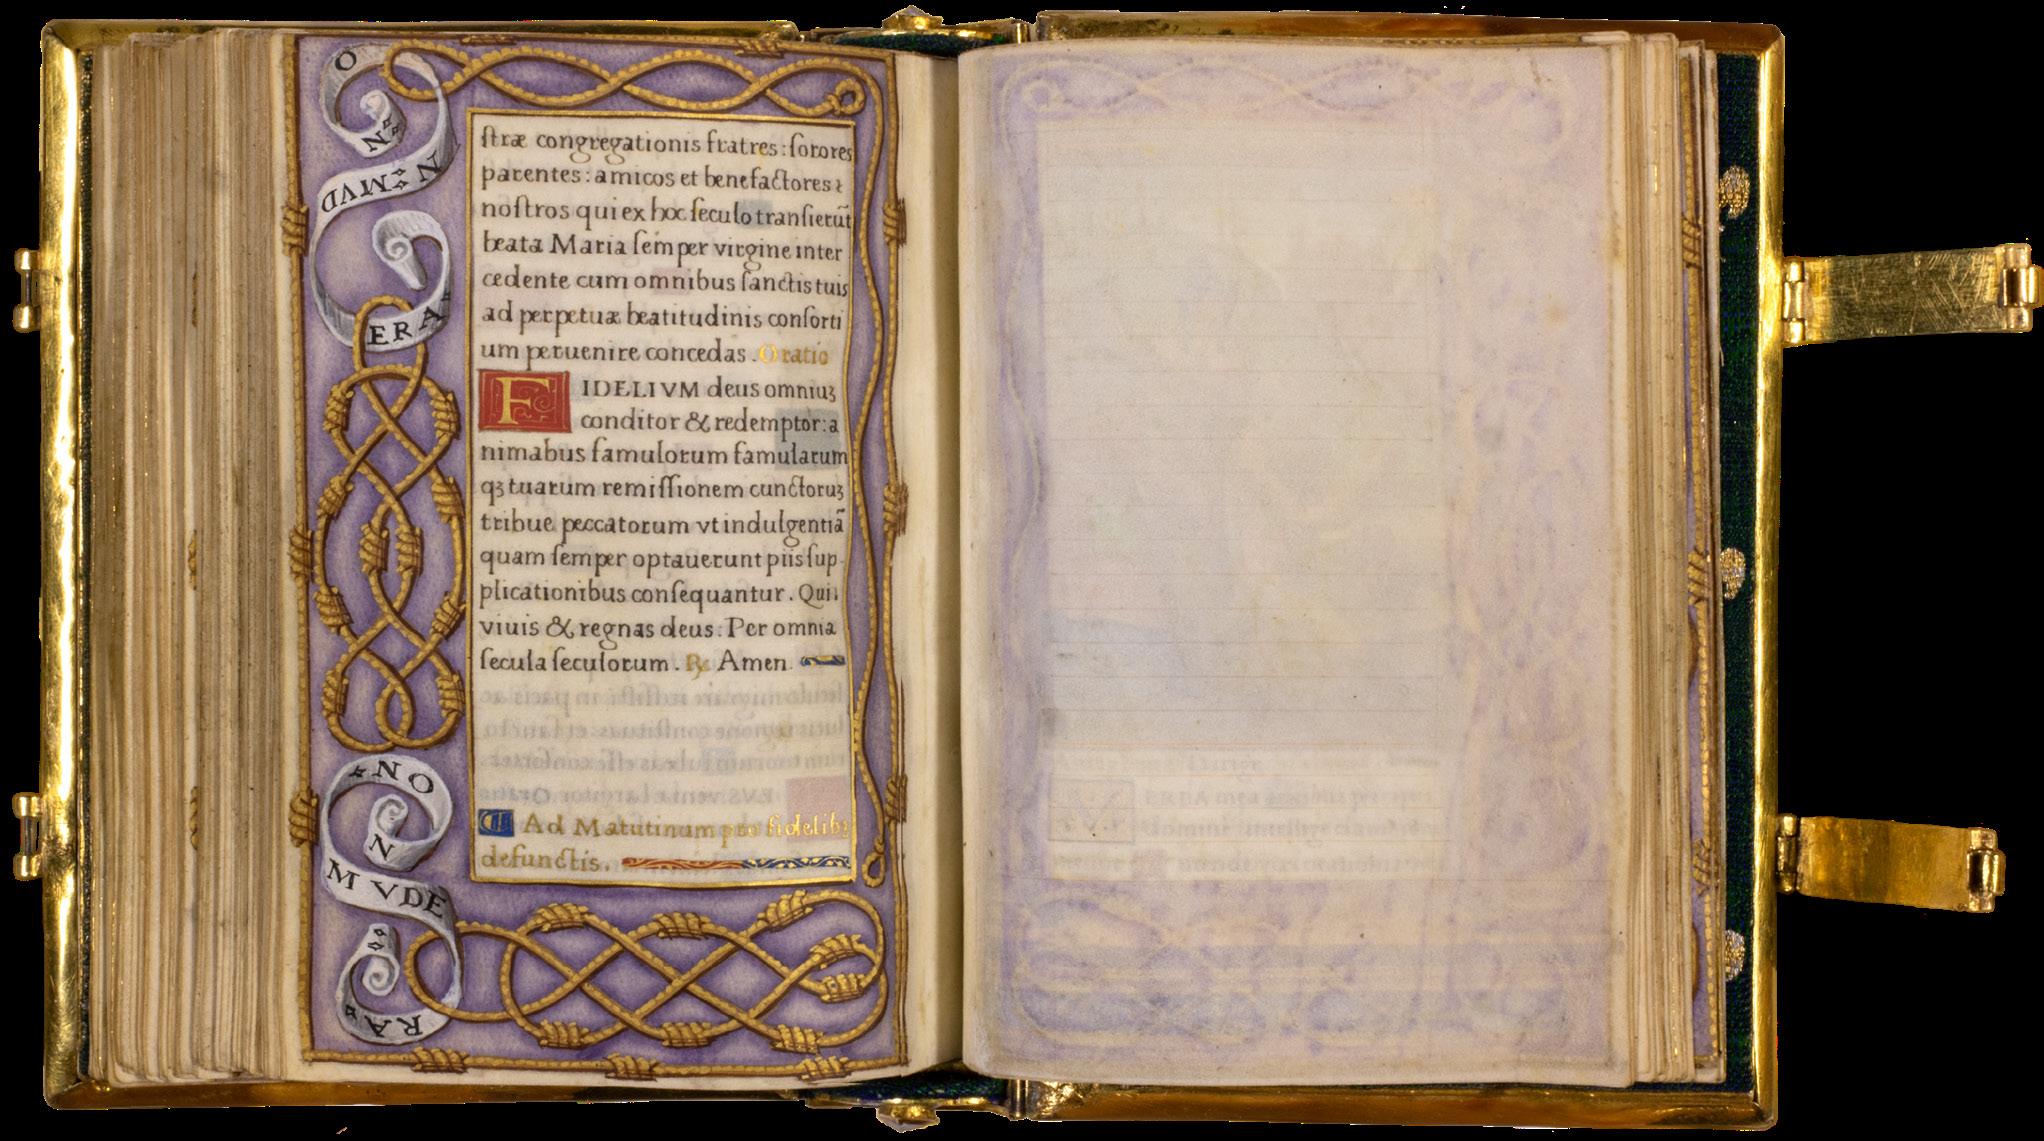 O
N
NON
MVD
ERA
ſtræ congregationis fratres : ſorores
parentes : amicos et benefactores ⁊
noſtros qui ex hoc ſeculo tranſierũt
beata Maria ſemper virgine inter
cedente cum omnibus ſanctis tuis
ad perpetuæ beatitudinis conſorti
um peruenire concedas . Oratio
FIDELIVM deus omniuꝫ
conditor & redemptor : a
nimabus famulorum famularum
qꝫ tuarum remiſſionem cunctoruꝫ
tribue peccatorum vt indulgentiã
quam ſemper optauerunt piis ſup
plicationibus conſequantur . Qui
viuis & regnas deus : Per omnia
ſecula ſeculorum . ℟ Amen .
Ad Matutinum pro fidelibꝫ
defunctis .
NO
N
MVDE
RA